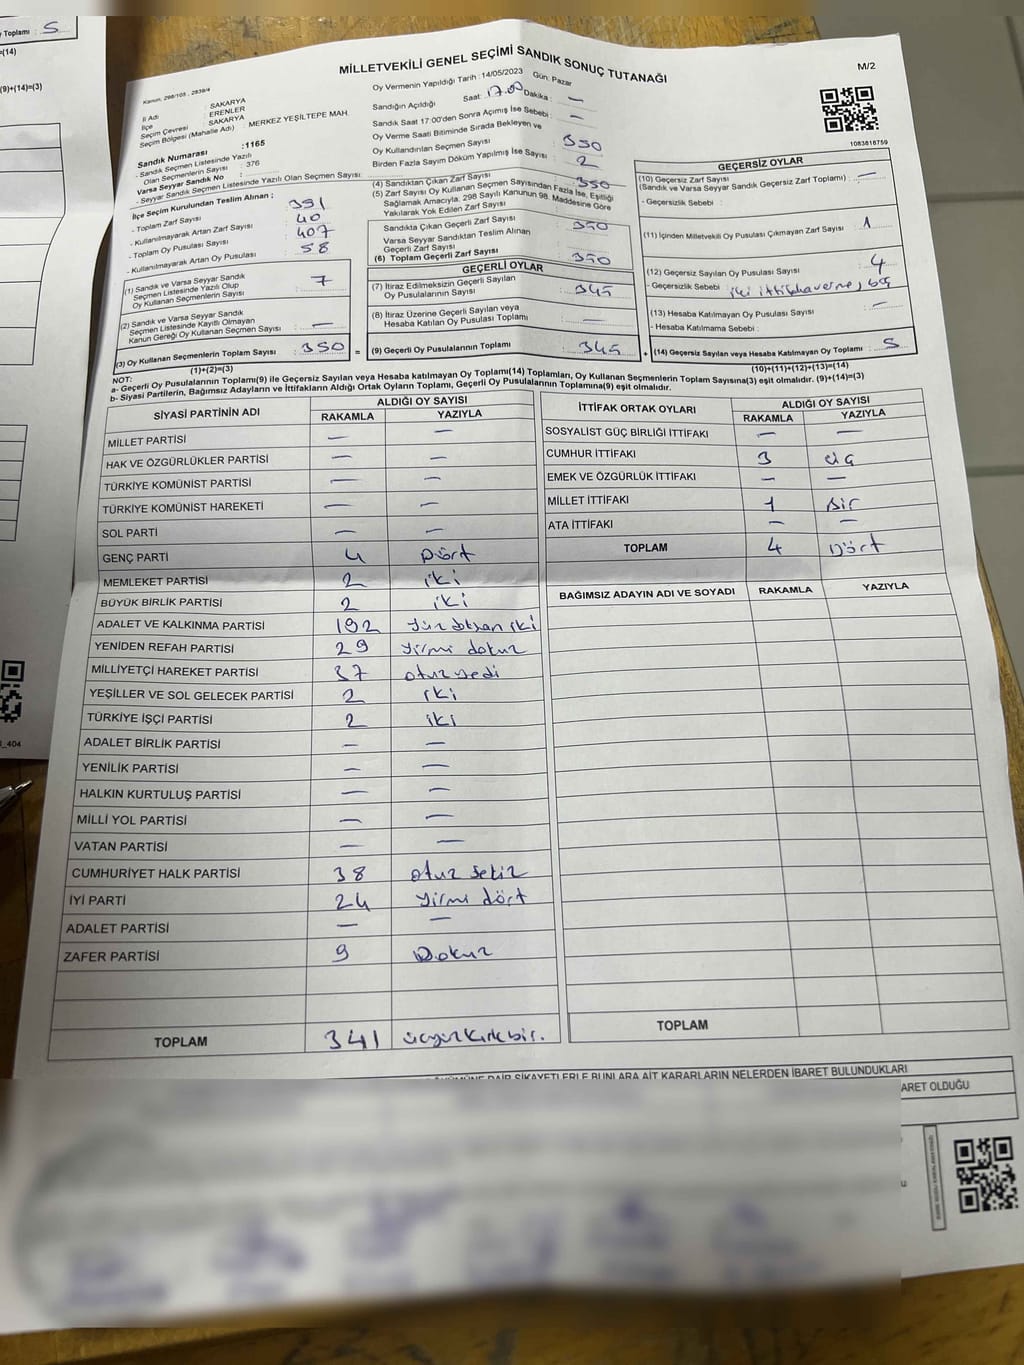 Toplamı : 5
=(14)
(9)+(14)=(3)
MİLLETVEKİLİ GENEL SEÇİMİ SANDIK SONUÇ TUTANAĞI
M/2
Kanun: 298/105 , 2839/4
İl Adı : SAKARYA
İlçe : ERENLER
Seçim Çevresi : SAKARYA
Seçim Bölgesi (Mahalle Adı) : MERKEZ YEŞİLTEPE MAH.
Sandık Numarası :1165
- Sandık Seçmen Listesinde Yazılı
Olan Seçmenlerin Sayısı : 376
Varsa Seyyar Sandık No :
- Seyyar Sandık Seçmen Listesinde Yazılı Olan Seçmen Sayısı
İlçe Seçim Kurulundan Teslim Alınan :
- Toplam Zarf Sayısı 391
- Kullanılmayarak Artan Zarf Sayısı 40
- Toplam Oy Pusulası Sayısı 407
- Kullanılmayarak Artan Oy Pusulası 58
(1) Sandık ve Varsa Seyyar Sandık
Seçmen Listesinde Yazılı Olup
Oy Kullanan Seçmenlerin Sayısı 7
(2) Sandık ve Varsa Seyyar Sandık
Seçmen Listesinde Kayıtlı Olmayan
Kanun Gereği Oy Kullanan Seçmen Sayısı : —
(3) Oy Kullanan Seçmenlerin Toplam Sayısı : 350
(1)+(2)=(3)
Oy Vermenin Yapıldığı Tarih : 14/05/2023 Gün: Pazar
Sandığın Açıldığı Saat: 17.00 Dakika : —
Sandık Saat 17:00'den Sonra Açılmış İse Sebebi : —
Oy Verme Saati Bitiminde Sırada Bekleyen ve
Oy Kullandırılan Seçmen Sayısı 350
Birden Fazla Sayım Döküm Yapılmış İse Sayısı : 2
(4) Sandıktan Çıkan Zarf Sayısı : 350
(5) Zarf Sayısı Oy Kullanan Seçmen Sayısından Fazla İse, Eşitliği
Sağlamak Amacıyla; 298 Sayılı Kanunun 98. Maddesine Göre
Yakılarak Yok Edilen Zarf Sayısı :
Sandıkta Çıkan Geçerli Zarf Sayısı 350
Varsa Seyyar Sandıktan Teslim Alınan
Geçerli Zarf Sayısı
(6) Toplam Geçerli Zarf Sayısı 350
GEÇERLİ OYLAR
(7) İtiraz Edilmeksizin Geçerli Sayılan
Oy Pusulalarının Sayısı : 345
(8) İtiraz Üzerine Geçerli Sayılan veya
Hesaba Katılan Oy Pusulası Toplamı : —
= (9) Geçerli Oy Pusulalarının Toplamı : 345
1083818759
GEÇERSİZ OYLAR
(10) Geçersiz Zarf Sayısı
(Sandık ve Varsa Seyyar Sandık Geçersiz Zarf Toplamı) : —
- Geçersizlik Sebebi :
(11) İçinden Milletvekili Oy Pusulası Çıkmayan Zarf Sayısı : 1
(12) Geçersiz Sayılan Oy Pusulası Sayısı : 4
- Geçersizlik Sebebi : iki ittifaka verme, boş
(13) Hesaba Katılmayan Oy Pusulası Sayısı : —
- Hesaba Katılmama Sebebi :
+ (14) Geçersiz Sayılan veya Hesaba Katılmayan Oy Toplamı : 5
(10)+(11)+(12)+(13)=(14)
NOT:
a- Geçerli Oy Pusulalarının Toplamı(9) ile Geçersiz Sayılan veya Hesaba Katılmayan Oy Toplamı(14) Toplamları, Oy Kullanan Seçmenlerin Toplam Sayısına(3) eşit olmalıdır. (9)+(14)=(3)
b- Siyasi Partilerin, Bağımsız Adayların ve İttifakların Aldığı Ortak Oyların Toplamı, Geçerli Oy Pusulalarının Toplamına(9) eşit olmalıdır.
SİYASİ PARTİNİN ADI ALDIĞI OY SAYISI
RAKAMLA YAZIYLA
MİLLET PARTİSİ — —
HAK VE ÖZGÜRLÜKLER PARTİSİ — —
TÜRKİYE KOMÜNİST PARTİSİ — —
TÜRKİYE KOMÜNİST HAREKETİ — —
SOL PARTİ — —
GENÇ PARTİ 4 Dört
MEMLEKET PARTİSİ 2 iki
BÜYÜK BİRLİK PARTİSİ 2 iki
ADALET VE KALKINMA PARTİSİ 192 yüz doksan iki
YENİDEN REFAH PARTİSİ 29 yirmi dokuz
MİLLİYETÇİ HAREKET PARTİSİ 37 otuz yedi
YEŞİLLER VE SOL GELECEK PARTİSİ 2 iki
TÜRKİYE İŞÇİ PARTİSİ 2 iki
ADALET BİRLİK PARTİSİ — —
YENİLİK PARTİSİ — —
HALKIN KURTULUŞ PARTİSİ — —
MİLLİ YOL PARTİSİ — —
VATAN PARTİSİ — —
CUMHURİYET HALK PARTİSİ 38 otuz sekiz
İYİ PARTİ 24 yirmi dört
ADALET PARTİSİ — —
ZAFER PARTİSİ 9 Dokuz
TOPLAM 341 üçyüz kırk bir.
İTTİFAK ORTAK OYLARI ALDIĞI OY SAYISI
RAKAMLA YAZIYLA
SOSYALİST GÜÇ BİRLİĞİ İTTİFAKI — —
CUMHUR İTTİFAKI 3 üç
EMEK VE ÖZGÜRLÜK İTTİFAKI — —
MİLLET İTTİFAKI 1 Bir
ATA İTTİFAKI — —
TOPLAM 4 Dört
BAĞIMSIZ ADAYIN ADI VE SOYADI RAKAMLA YAZIYLA
TOPLAM
DAİR ŞİKAYETLERLE BUNLARA AİT KARARLARIN NELERDEN İBARET BULUNDUKLARI
ARET OLDUĞU
_404